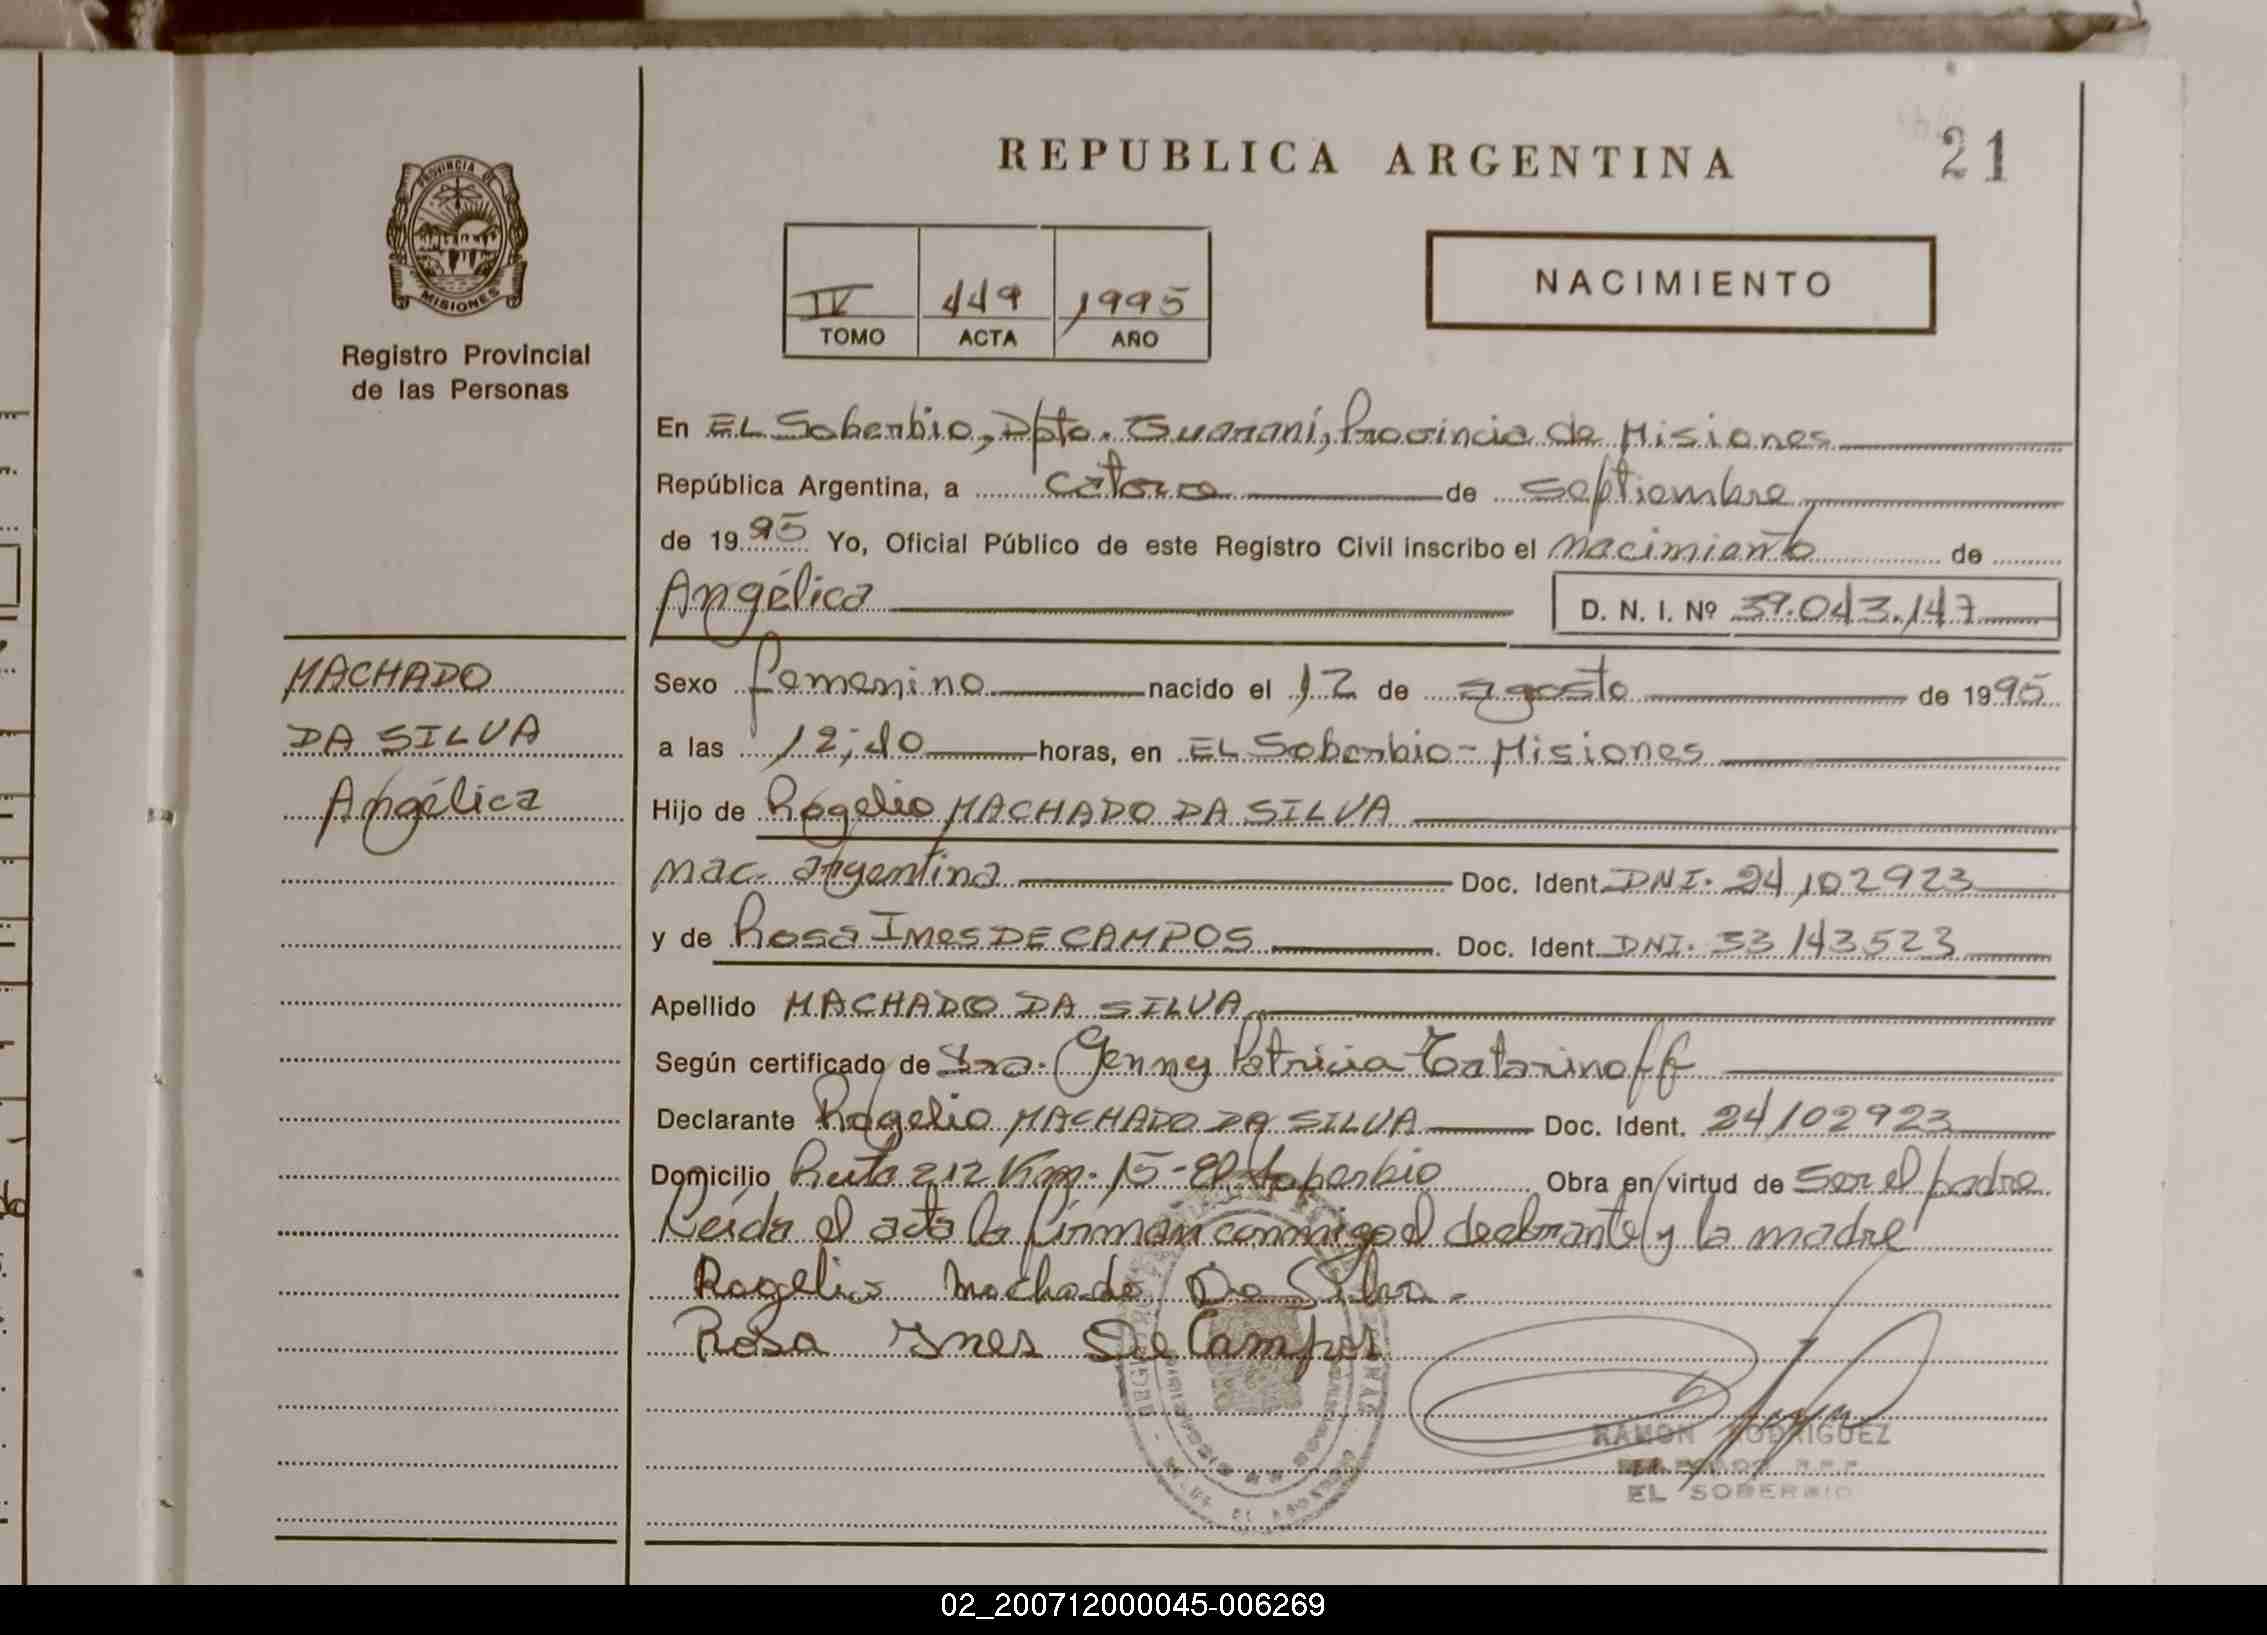 REPUBLICA ARGENTINA
21
PROVINCIA DE
MISIONES
Registro Provincial
de las Personas
IV 449 1995
TOMO ACTA AÑO
NACIMIENTO
En EL Soberbio, Dpto. Guaraní, Provincia de Misiones
República Argentina, a catorce de septiembre
de 1995 Yo, Oficial Público de este Registro Civil inscribo el nacimiento de
Angélica D. N. I. Nº 39.043.147
MACHADO
DA SILVA
Angélica
Sexo femenino nacido el 12 de agosto de 1995
a las 12:40 horas, en EL Soberbio - Misiones
Hijo de Rogelio MACHADO DA SILVA
nac. argentina Doc. Ident. DNI. 24102923
y de Rosa Ines DE CAMPOS Doc. Ident. DNI. 33143523
Apellido MACHADO DA SILVA
Según certificado de Dra. Genny Patricia Tatarinoff
Declarante Rogelio MACHADO DA SILVA Doc. Ident. 24102923
Domicilio Ruta 212 Km. 15 - El Soberbio Obra en virtud de ser el padre
Leída el acta la firman conmigo el declarante y la madre
Rogelio Machado Da Silva.
Rosa Ines De Campos
RAMON RODRIGUEZ
EL SOBERBIO
02_200712000045-006269